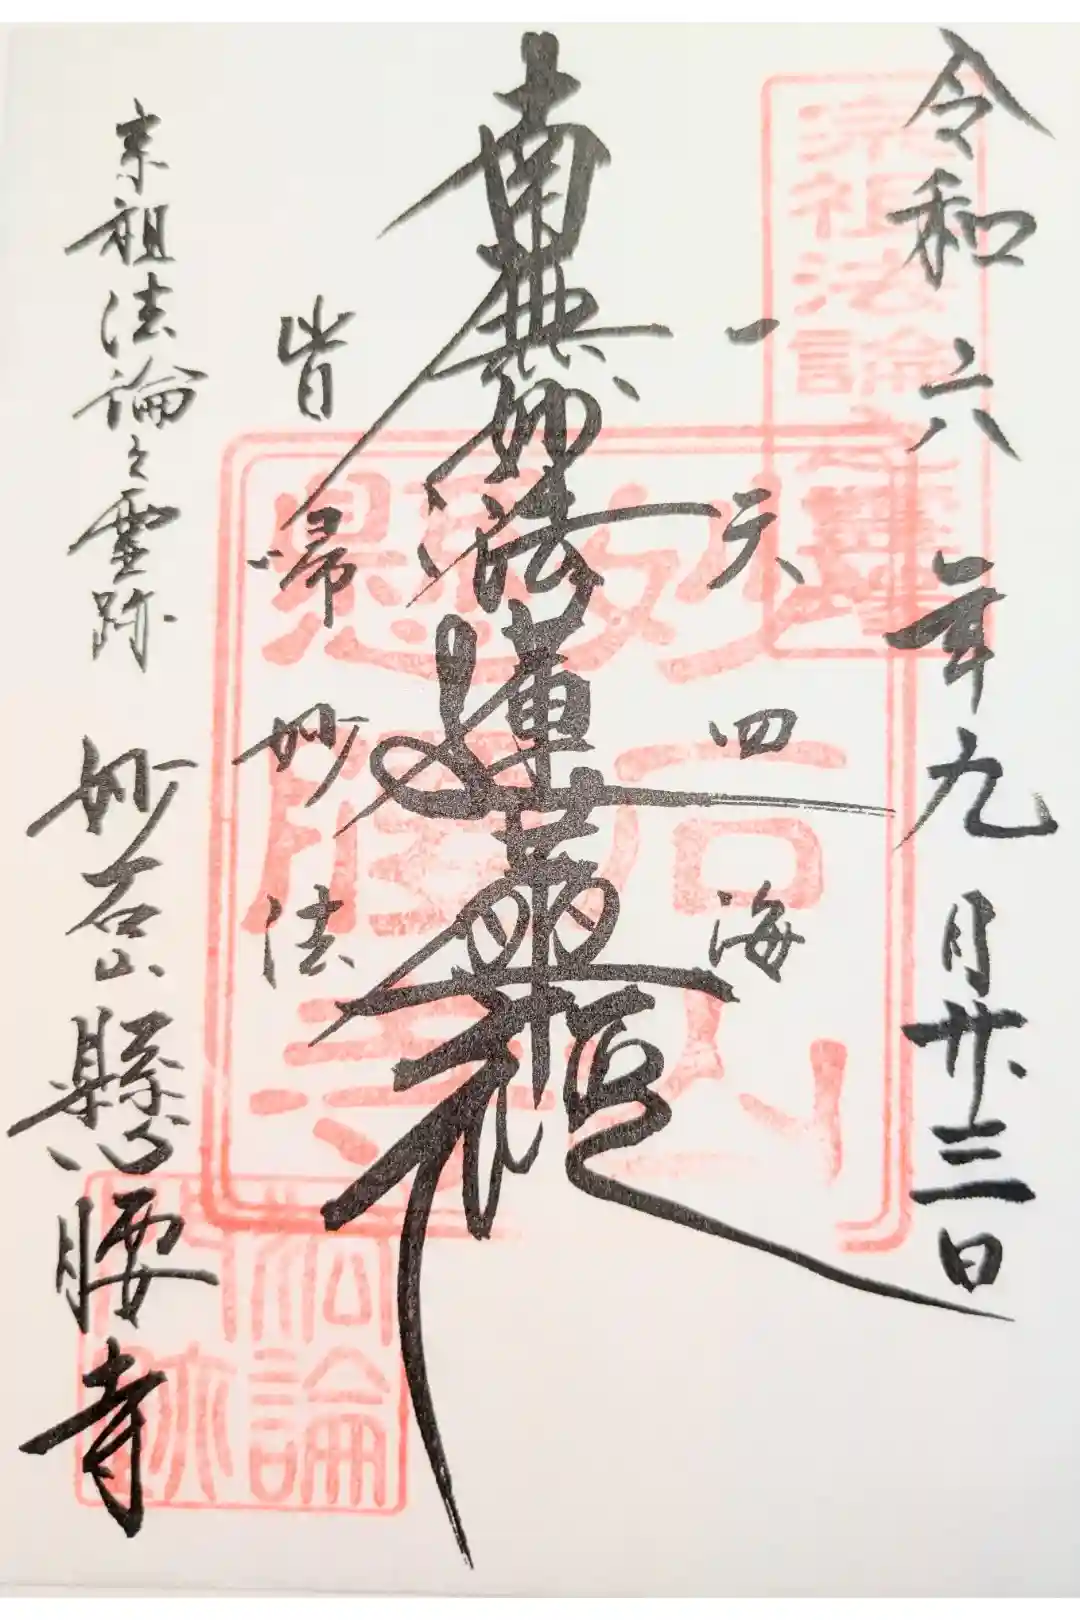 令和六年九月廿三日
一天四海
南無妙法蓮華経
皆帰妙法
宗祖法論之霊跡
妙石山懸腰寺
宗祖法論之霊蹟
妙石山
懸腰寺
法論